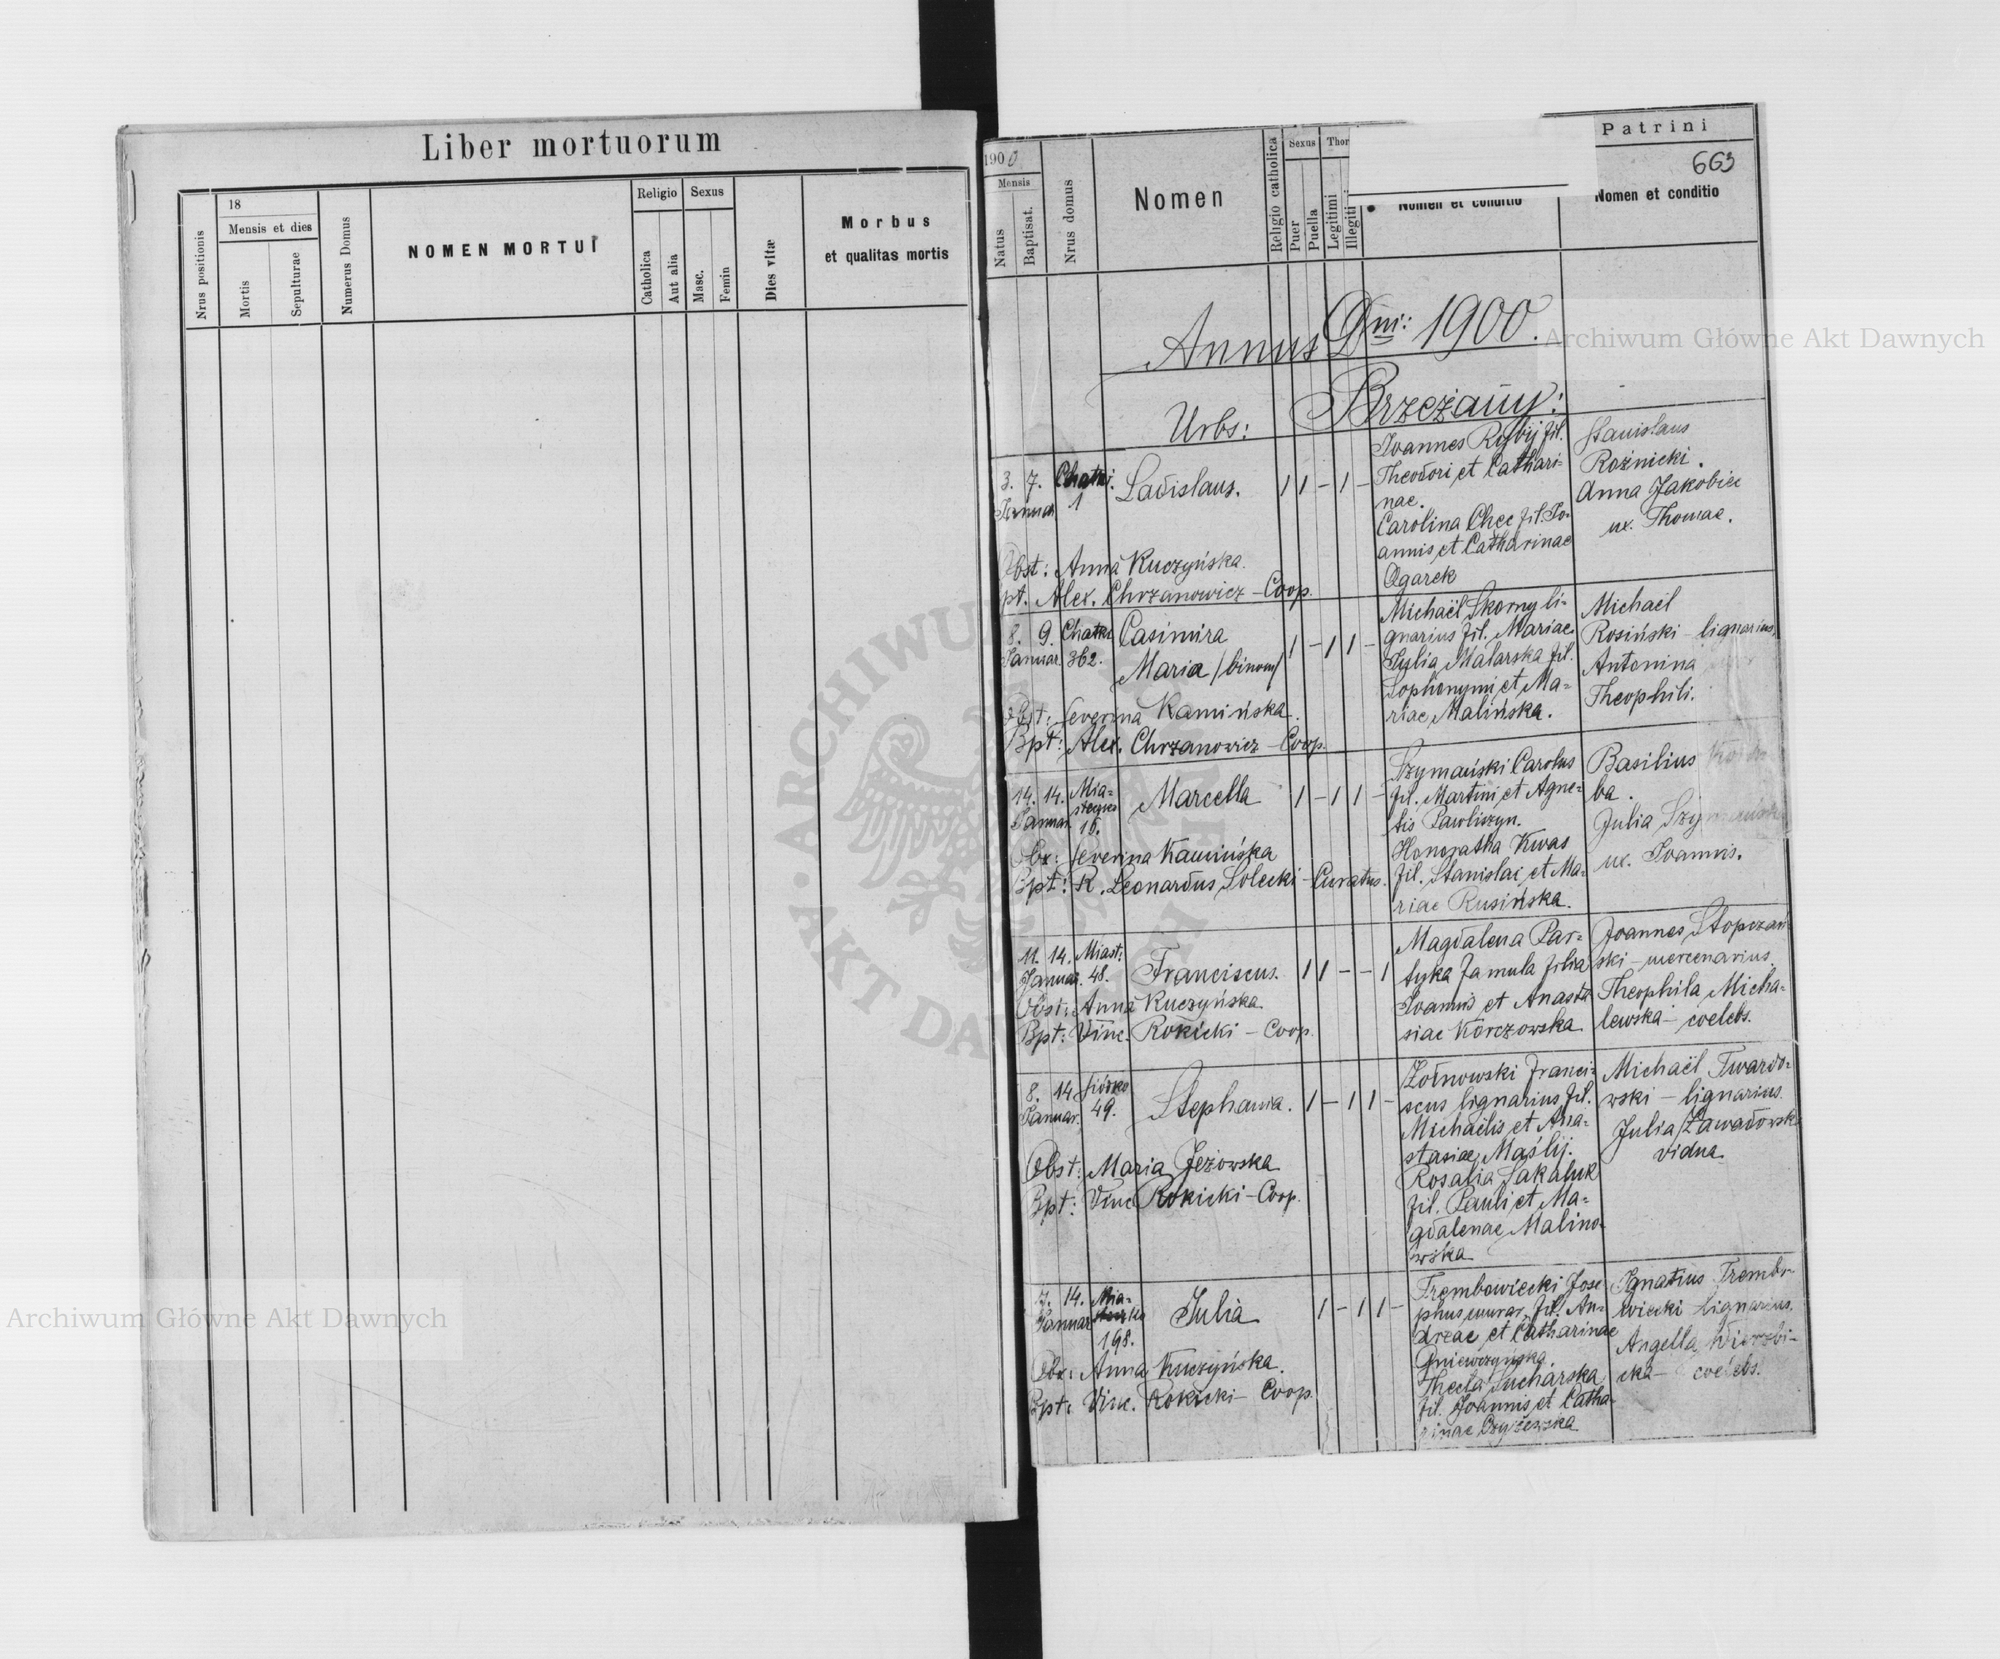 Liber mortuorum
Nrus positionis
18
Mensis et dies
Mortis
Sepulturae
Numerus Domus
NOMEN MORTUI
Religio
Catholica
Aut alia
Sexus
Masc.
Femin
Dies vitæ
Morbus
et qualitas mortis
1900
Mensis
Natus
Baptisat.
Nrus domus
Nomen
Religio catholica
Sexus
Puer
Puella
Thor
Legitimi
Illegiti
Nomen et conditio
Patrini
663
Nomen et conditio
Annus Dni: 1900.
Urbs: Brzeżany:
3. 7. Chatki.
Januar 1
Ladislaus.
1 1 – 1 –
Joannes fil.
Theodori et Cathari-
nae.
Carolina Chec fil. Jo-
annis et Catharinae
Ogarek
Stanislaus
Roźnicki.
Anna Jakobiec
ux. Thomae.
Obst: Anna Kuczyńska.
Bpt. Alex. Chrzanowicz – Coop.
8. 9. Chatki
Januar. 362.
Casimira
Maria /binom/
1 – 1 1 –
Michaël Skorny li-
gnarius fil. Mariae
Julia Malarska fil.
et Ma-
riae Malińska.
Michael
Rosiński – lignarius,
Antonina
Theophili.
Obst: Severina Kamińska.
Bpt: Alex. Chrzanowicz – Coop.
14. 14. Mia-
Januar. steczko
16.
Marcella
1 – 1 1 –
Szymański Carolus
fil. Martini et Agne-
tis Pawliczyn.
Honoratha Kwas
fil. Stanislai et Ma-
riae Rusińska.
Basilius
ba.
Julia Szymańska
ux. Joannis.
Obx: Severina Kamińska
Bpt: R. Leonardus Solecki – Curatus.
11. 14. Miast:
Januar. 48.
Franciscus.
1 1 – – 1
Magdalena Par-
tyka famula filia
Joannis et Anasta
siae Korczowska
Joannes Stopczań-
ski – mercenarius.
Theophila Micha-
lewska – coelebs.
Obst: Anna Kuczyńska.
Bpt: Vinc. Rokicki – Coop.
8. 14. Siółko
Januar. 49.
Stephania.
1 – 1 1 –
Żołnowski Franci-
scus lignarius fil.
Michaëlis et Ana-
stasiae Maślij.
Rosalia Sakaluk
fil. Pauli et Ma-
gdalenae Malino-
wska
Michaël Twardo-
wski – lignarius.
Julia Zawadowska
vidua.
Obst: Maria Jeżowska
Bpt: Vinc Rokicki – Coop.
14. Mia-
Januar steczko
198.
Julia
1 – 1 1 –
Trembowiecki Jose
phus murar. fil. An-
dreae et Catharinae
Gniewczyńska.
Thecla Sucharska
fil. Joannis et Catha-
rinae Czyżewska
Ignatius Trembo-
wiecki lignarius.
Angella Wierzbi-
cka – coelebs.
Obx: Anna Kuczyńska.
Bpt: Vinc. Rokicki – Coop.
Archiwum Główne Akt Dawnych
Archiwum Główne Akt Dawnych